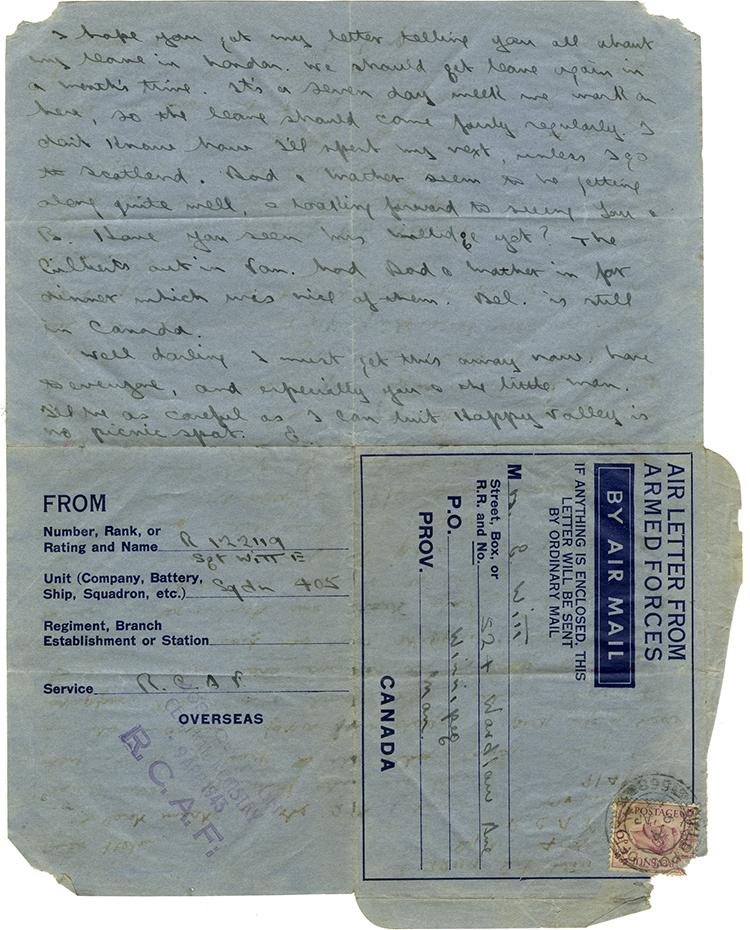 I hope you got my letter telling you all about
my leave in London. We should get leave again in
a month's time. It's a seven day week we work on
here, so the leave should come fairly regularly. I
don't know how I'll spent my next, unless I go
to Scotland. Dad & Mother seem to be getting
along quite well, & looking forward to seeing you &
B. Have you seen Mrs yet? The
out in Van. had Dad & Mother in for
dinner which was nice of them. Bel. is still
in Canada.
Well darling I must get this away now. Love
to everyone, and especially you & the little man.
I'll be as careful as I can but Happy Valley is
no picnic spot. E.
FROM
Number, Rank, or
Rating and Name R 122119
Sgt Witt E
Unit (Company, Battery,
Ship, Squadron, etc.) Sqdn 405
Regiment, Branch
Establishment or Station
Service R.C.A.F.
OVERSEAS
1943
R.C.A.F.
AIR LETTER FROM
ARMED FORCES
BY AIR MAIL
IF ANYTHING IS ENCLOSED, THIS
LETTER WILL BE SENT
BY ORDINARY MAIL
Mrs. E Witt
Street, Box, or
R.R. and No. 524 Wardlaw Ave
P.O. Winnipeg
PROV. Man.
CANADA
POSTAGE